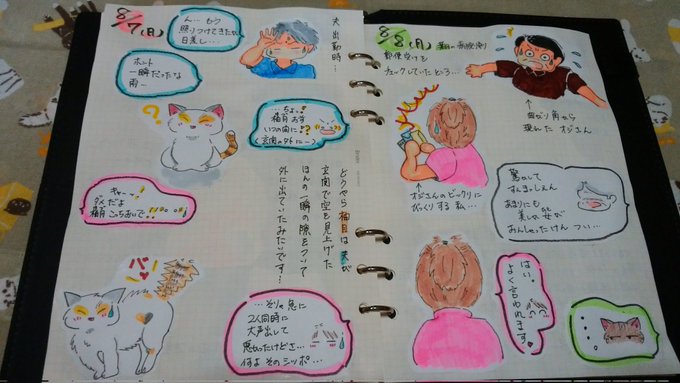 8/7(月)
ん…もう
照りつけてきたね
日差し…
夫出勤時…
ホント
一瞬だったな
雨ー
?
…ちょっ!
楠肖おま
いつの間に!?
(玄関の外にー)
キャーッ!
ダメだよ
こっちおいで!!
どうやら柚月は夫が
玄関で空を見上げた
ほんの一瞬の隙をついて
外に出ていたみたいです…
バッ
…そりゃ急に
2人同時に
大声出して
悪かったけどさ…
何よそのシッポ…
8/8(月)
郵便受けを
チェックしていたところ…
↑
曲がり角から
現れたオジさん
↑
オジさんのビックリに
びっくりする私…
驚かして
すんまっしぇん
あまりにも
美しい女が
おんしゃったけん つい…
はい。
よく言われます
…